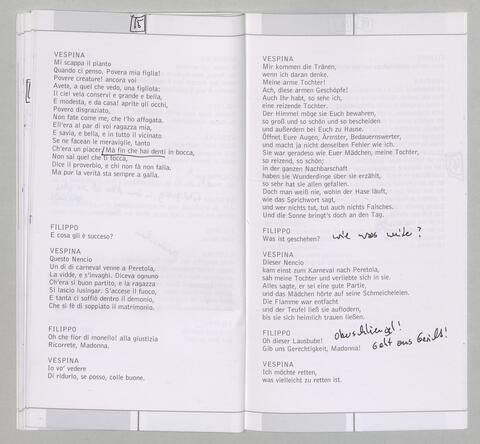 15
VESPINA
Mi scappa il pianto
Quando ci penso. Povera mia figlia!
Povere creature! ancora voi
Avete, a quel che vedo, una figliolà:
Il ciel vela conservi e grande e bella,
E modesta, e da casa! aprite gli occhi,
Povero disgraziato,
Non fate come me, che l'ho affogata.
Ell'era al par di voi ragazza mia,
E savia, e bella, e in tutto il vicinato
Se ne facean le meraviglie, tanto
Ch'era un piacer. Mà fin che hai denti in bocca,
Non sai quel che ti tocca,
Dice il proverbio, e chi non fà non falla.
Ma pur la verità sta sempre a galla.
FILIPPO
E cosa gli è successo?
VESPINA
Questo Nencio
Un dì di carneval venne a Peretola,
La vidde, e s'invaghì. Diceva ognuno
Ch'era si buon partito, e la ragazza
Si lascio lusingar. S'accese il fuoco,
E tanta ci soffiò dentro il demonio,
Che si fè di soppiato il matrimonio.
FILIPPO
Oh che fior di monello! alla giustizia
Ricorrete, Madonna.
VESPINA
Io vo' vedere
Di ridurlo, se posso, colle buone.
VESPINA
Mir kommen die Tränen,
wenn ich daran denke.
Meine arme Tochter!
Ach, diese armen Geschöpfe!
Auch Ihr habt, so sehe ich,
eine reizende Tochter.
Der Himmel möge sie Euch bewahren,
so groß und so schön und so bescheiden
und außerdem bei Euch zu Hause.
Öffnet Eure Augen, Ärmster, Bedauernswerter,
und macht ja nicht denselben Fehler wie ich.
Sie war geradeso wie Euer Mädchen, meine Tochter,
so reizend, so schön;
in der ganzen Nachbarschaft
haben sie Wunderdinge über sie erzählt,
so sehr hat sie allen gefallen.
Doch man weiß nie, wohin der Hase läuft,
wie das Sprichwort sagt,
und wer nichts tut, tut auch nichts Falsches.
Und die Sonne bringt's doch an den Tag.
FILIPPO
Was ist geschehen? wie was weiter?
VESPINA
Dieser Nencio
kam einst zum Karneval nach Peretola,
sah meine Tochter und verliebte sich in sie.
Alles sagte, er sei eine gute Partie,
und das Mädchen hörte auf seine Schmeicheleien.
Die Flamme war entfacht
und der Teufel ließ sie auflodern,
bis sie sich heimlich trauen ließen.
FILIPPO
Oh dieser Lausbube!
Gib uns Gerechtigkeit, Madonna!
VESPINA
Ich möchte retten,
was vielleicht zu retten ist.